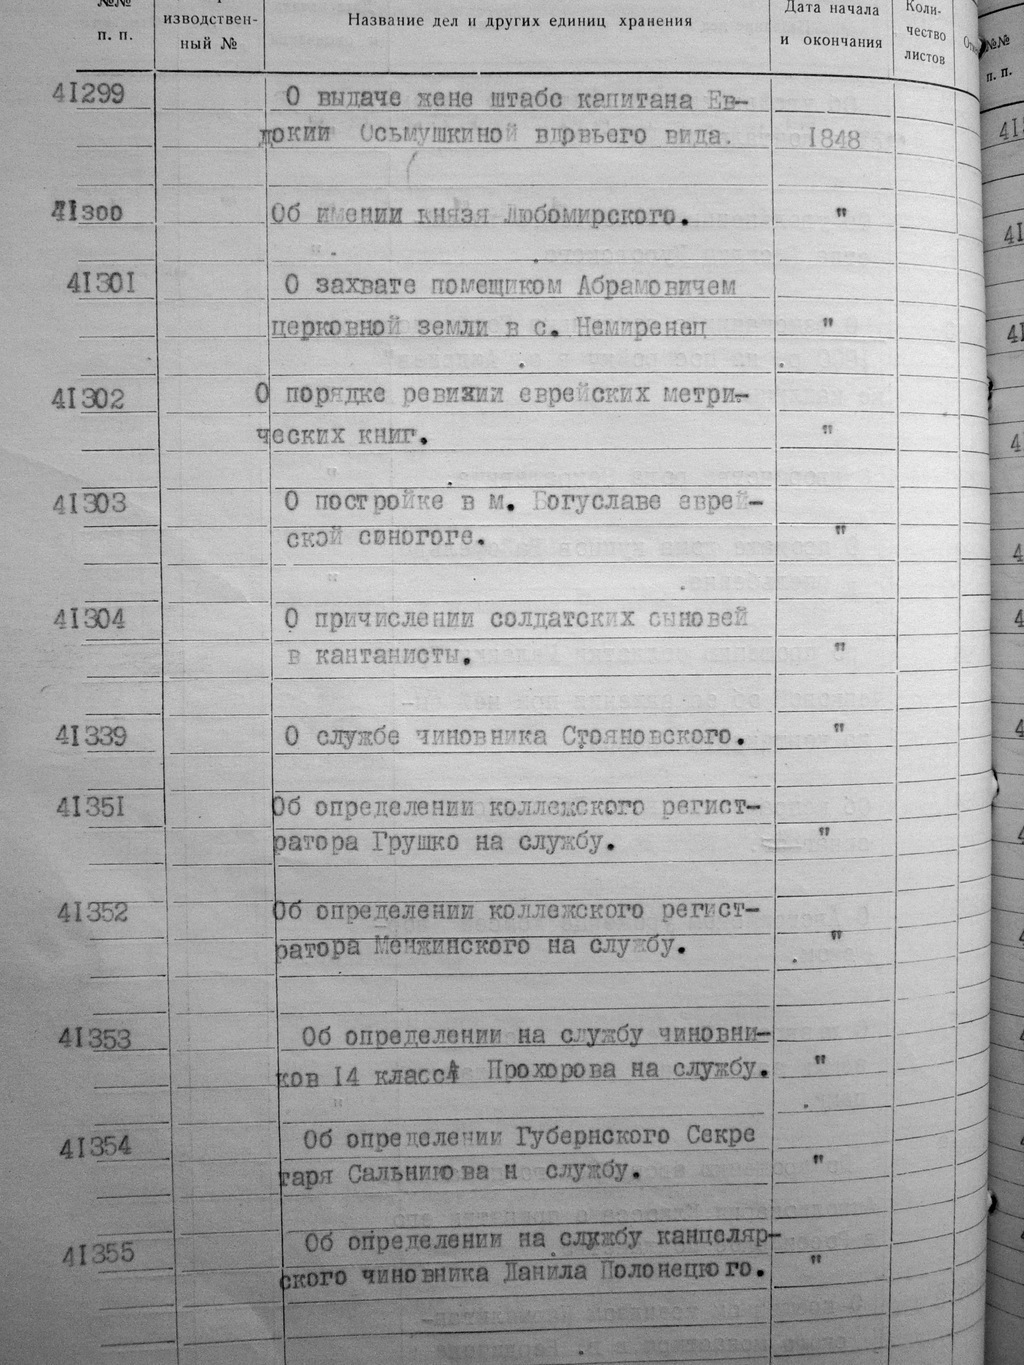 №№
п. п.
изводствен-
ный №
Название дел и других единиц хранения
Дата начала
и окончания
Коли-
чество
листов
41299 О выдаче жене штабс капитана Ев-
докии Осьмушкиной вдовьего вида. 1848
41300 Об имении князя Любомирского. "
41301 О захвате помещиком Абрамовичем
церковной земли в с. Немиренец "
41302 О порядке ревизии еврейских метри-
ческих книг. "
41303 О постройке в м. Богуславе еврей-
ской синогоге. "
41304 О причислении солдатских сыновей
в кантанисты. "
41339 О службе чиновника Стояновского. "
41351 Об определении коллежского регист-
ратора Грушко на службу. "
41352 Об определении коллежского регист-
ратора Менжинского на службу. "
41353 Об определении на службу чиновни-
ков 14 класса Прохорова на службу. "
41354 Об определении Губернского Секре
таря Сальникова н службу. "
41355 Об определении на службу канцеляр-
ского чиновника Данила Полонецкого. "
№№
п. п.